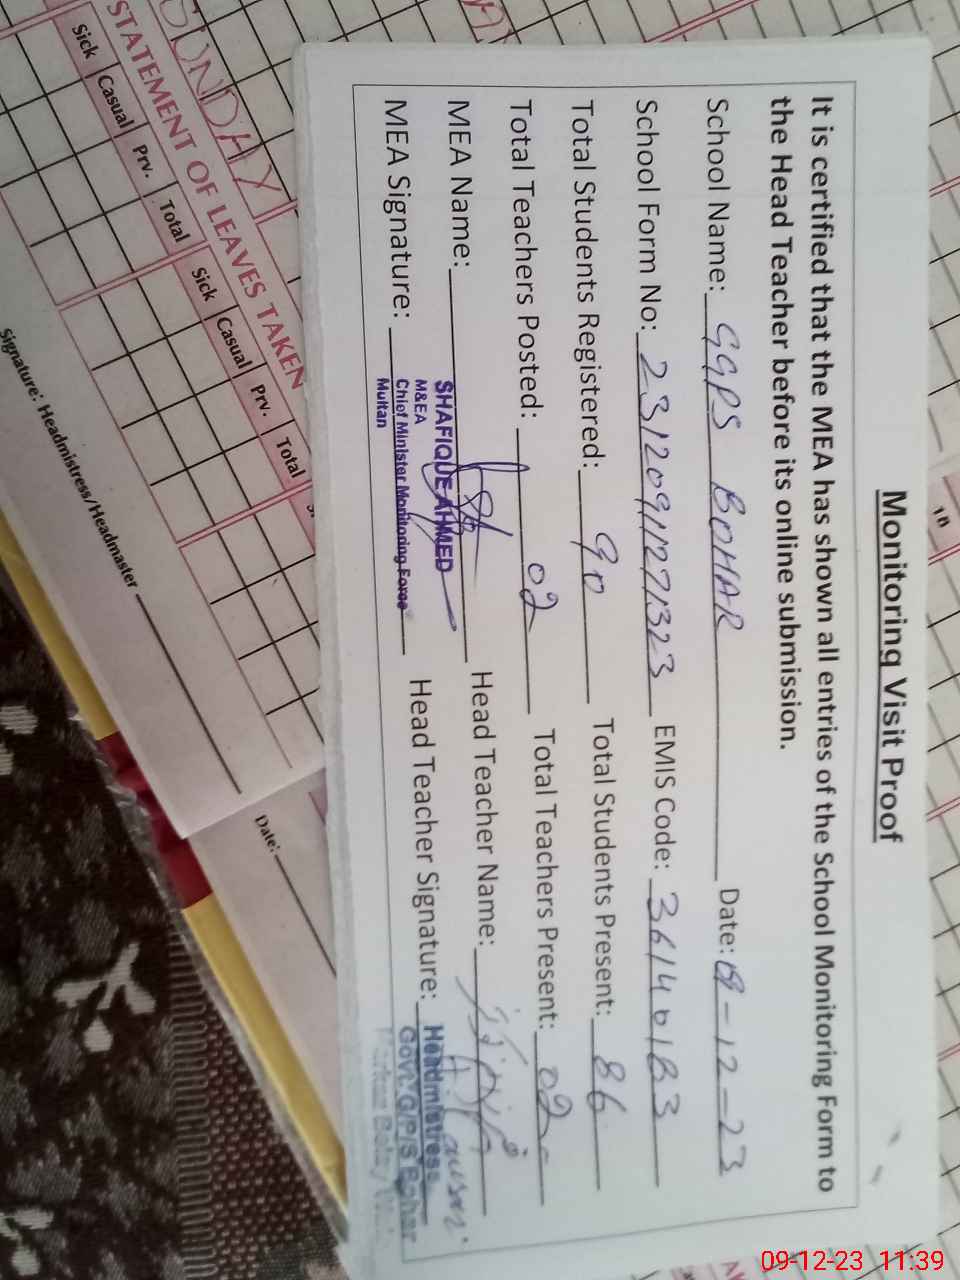 Monitoring Visit Proof
It is certified that the MEA has shown all entries of the School Monitoring Form to
the Head Teacher before its online submission.
School Name: GGPS BOHAR Date: 09-12-23
School Form No: 23120911271323 EMIS Code:
Total Students Registered: 90 Total Students Present: 86
Total Teachers Posted: 02 Total Teachers Present: 02
MEA Name: Head Teacher Name:
MEA Signature: Head Teacher Signature:
SHAFIQUE AHMED
M&EA
Chief Minister Monitoring Force
Multan
Headmistress
Govt: G/P/S Bohar
SUNDAY
STATEMENT OF LEAVES TAKEN
Sick Casual Prv. Total Sick Casual Prv. Total
Signature: Headmistress/Headmaster
Date:
18
09-12-23 11:39